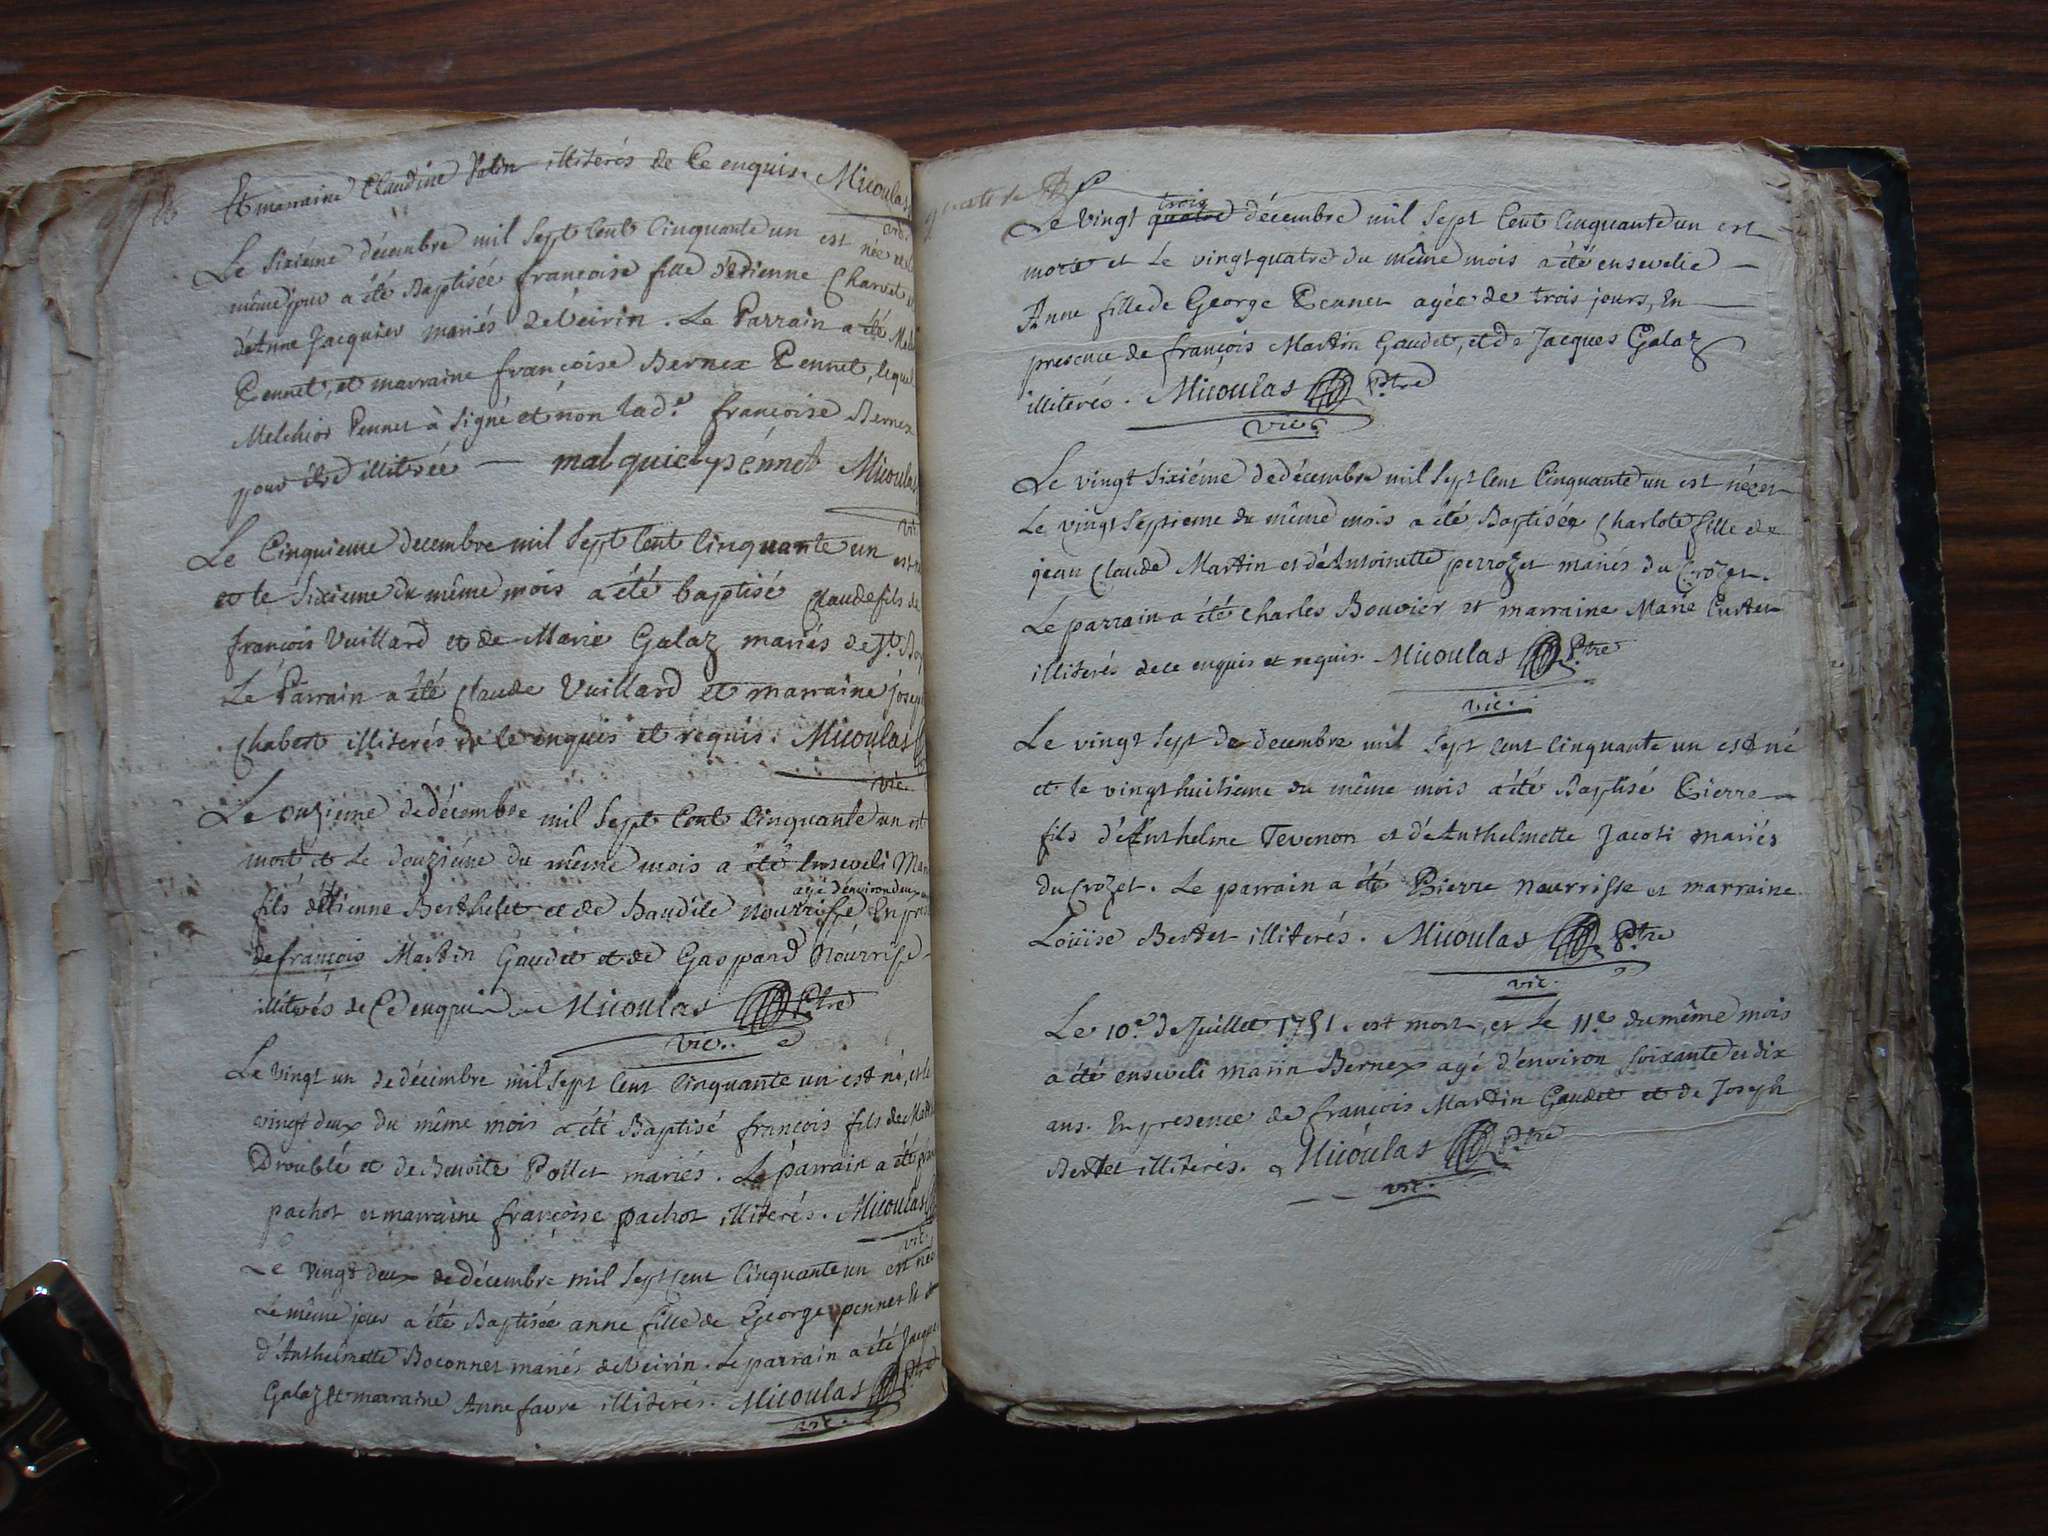 Et marraine Claudine illiterés de Ce enquis. Micoulas
vic.
Le sixiéme décembre mil sept Cent Cinquante un est née et le
même jour a été Baptisée françoise fille d'Etienne Charvet
d'Anne Jacquier mariés de Veirin. Le Parrain a été
Pennet, et marraine françoise Bernex Pennet, lequel
Melchior Pennet à signé et non lad.e françoise Bernex
pour être illiterée — malquiel pénnet Micoulas
vic
Le Cinquieme decembre mil sept Cent Cinquante un est
et le sixieme du même mois a été baptisé Claude fils de
françois Vuillard et de Marie Galaz mariés de St.
Le Parrain a été Claude Vuillard et marraine
Chabert illiterés de Ce enquis et requis. Micoulas
vic.
Le onzieme de décembre mil sept Cent Cinquante un est
mort et Le douziéme du même mois a été Enseveli
agé d'environ deux
fils d'Etienne Berthelet et de Baudile Nourrisse En
de françois Martin Gaudet et de Gaspard Nourrisse
illiterés de Ce enquis Micoulas Ptre
vic.
Le vingt un de décembre mil sept Cent Cinquante un est né, et le
vingt deux du même mois a été Baptisé françois fils de
Droublé et de Benoite Pollet mariés. Le parrain a été
pachot et marraine françoise pachot illiterés. Micoulas
vic.
Le vingt deux de décembre mil sept Cent Cinquante un est née
Le même jour a été Baptisée anne fille de George pennet Et
d'Anthelmette Boconnet mariés de Veirin. Le parrain a été Jacques
Galaz Et marraine Anne favre illiterés. Micoulas Ptre
vic.
trois
Le vingt quatre décembre mil sept Cent Cinquante un est
morte et Le vingt quatre du même mois a été ensevelie —
Anne fille de George Pennet agée de trois jours, En
presence de françois Martin Gaudet, et de Jacques Galaz
illiterés. Micoulas Ptre
vic.
Le vingt sixiéme de décembre mil sept Cent Cinquante un est née et
Le vingt septieme du même mois a été Baptisée Charlote fille de
jean Claude Martin et d'Antoinette perrozet mariés du Crozet.
Le parrain a été Charles Bouvier et marraine Marie Curtet
illiterés de ce enquis et requis. Micoulas Ptre
vic.
Le vingt sept de decembre mil sept cent Cinquante un est né
et le vingt huitieme du même mois a été Baptisé Pierre
fils d'Anthelme Tevenon et d'Anthelmette Jacoti mariés
du Crozet. Le parrain a été Pierre Nourrisse et marraine
Loüise Bertet illiterés. Micoulas Ptre
vic.
Le 10.e de Juillet 1751. est mort, et Le 11.e du même mois
a été enseveli marin Bernex agé d'environ soixante et dix
ans. En presence de françois Martin Gaudet et de Joseph
Bertet illiterés. Micoulas Ptre
vic.